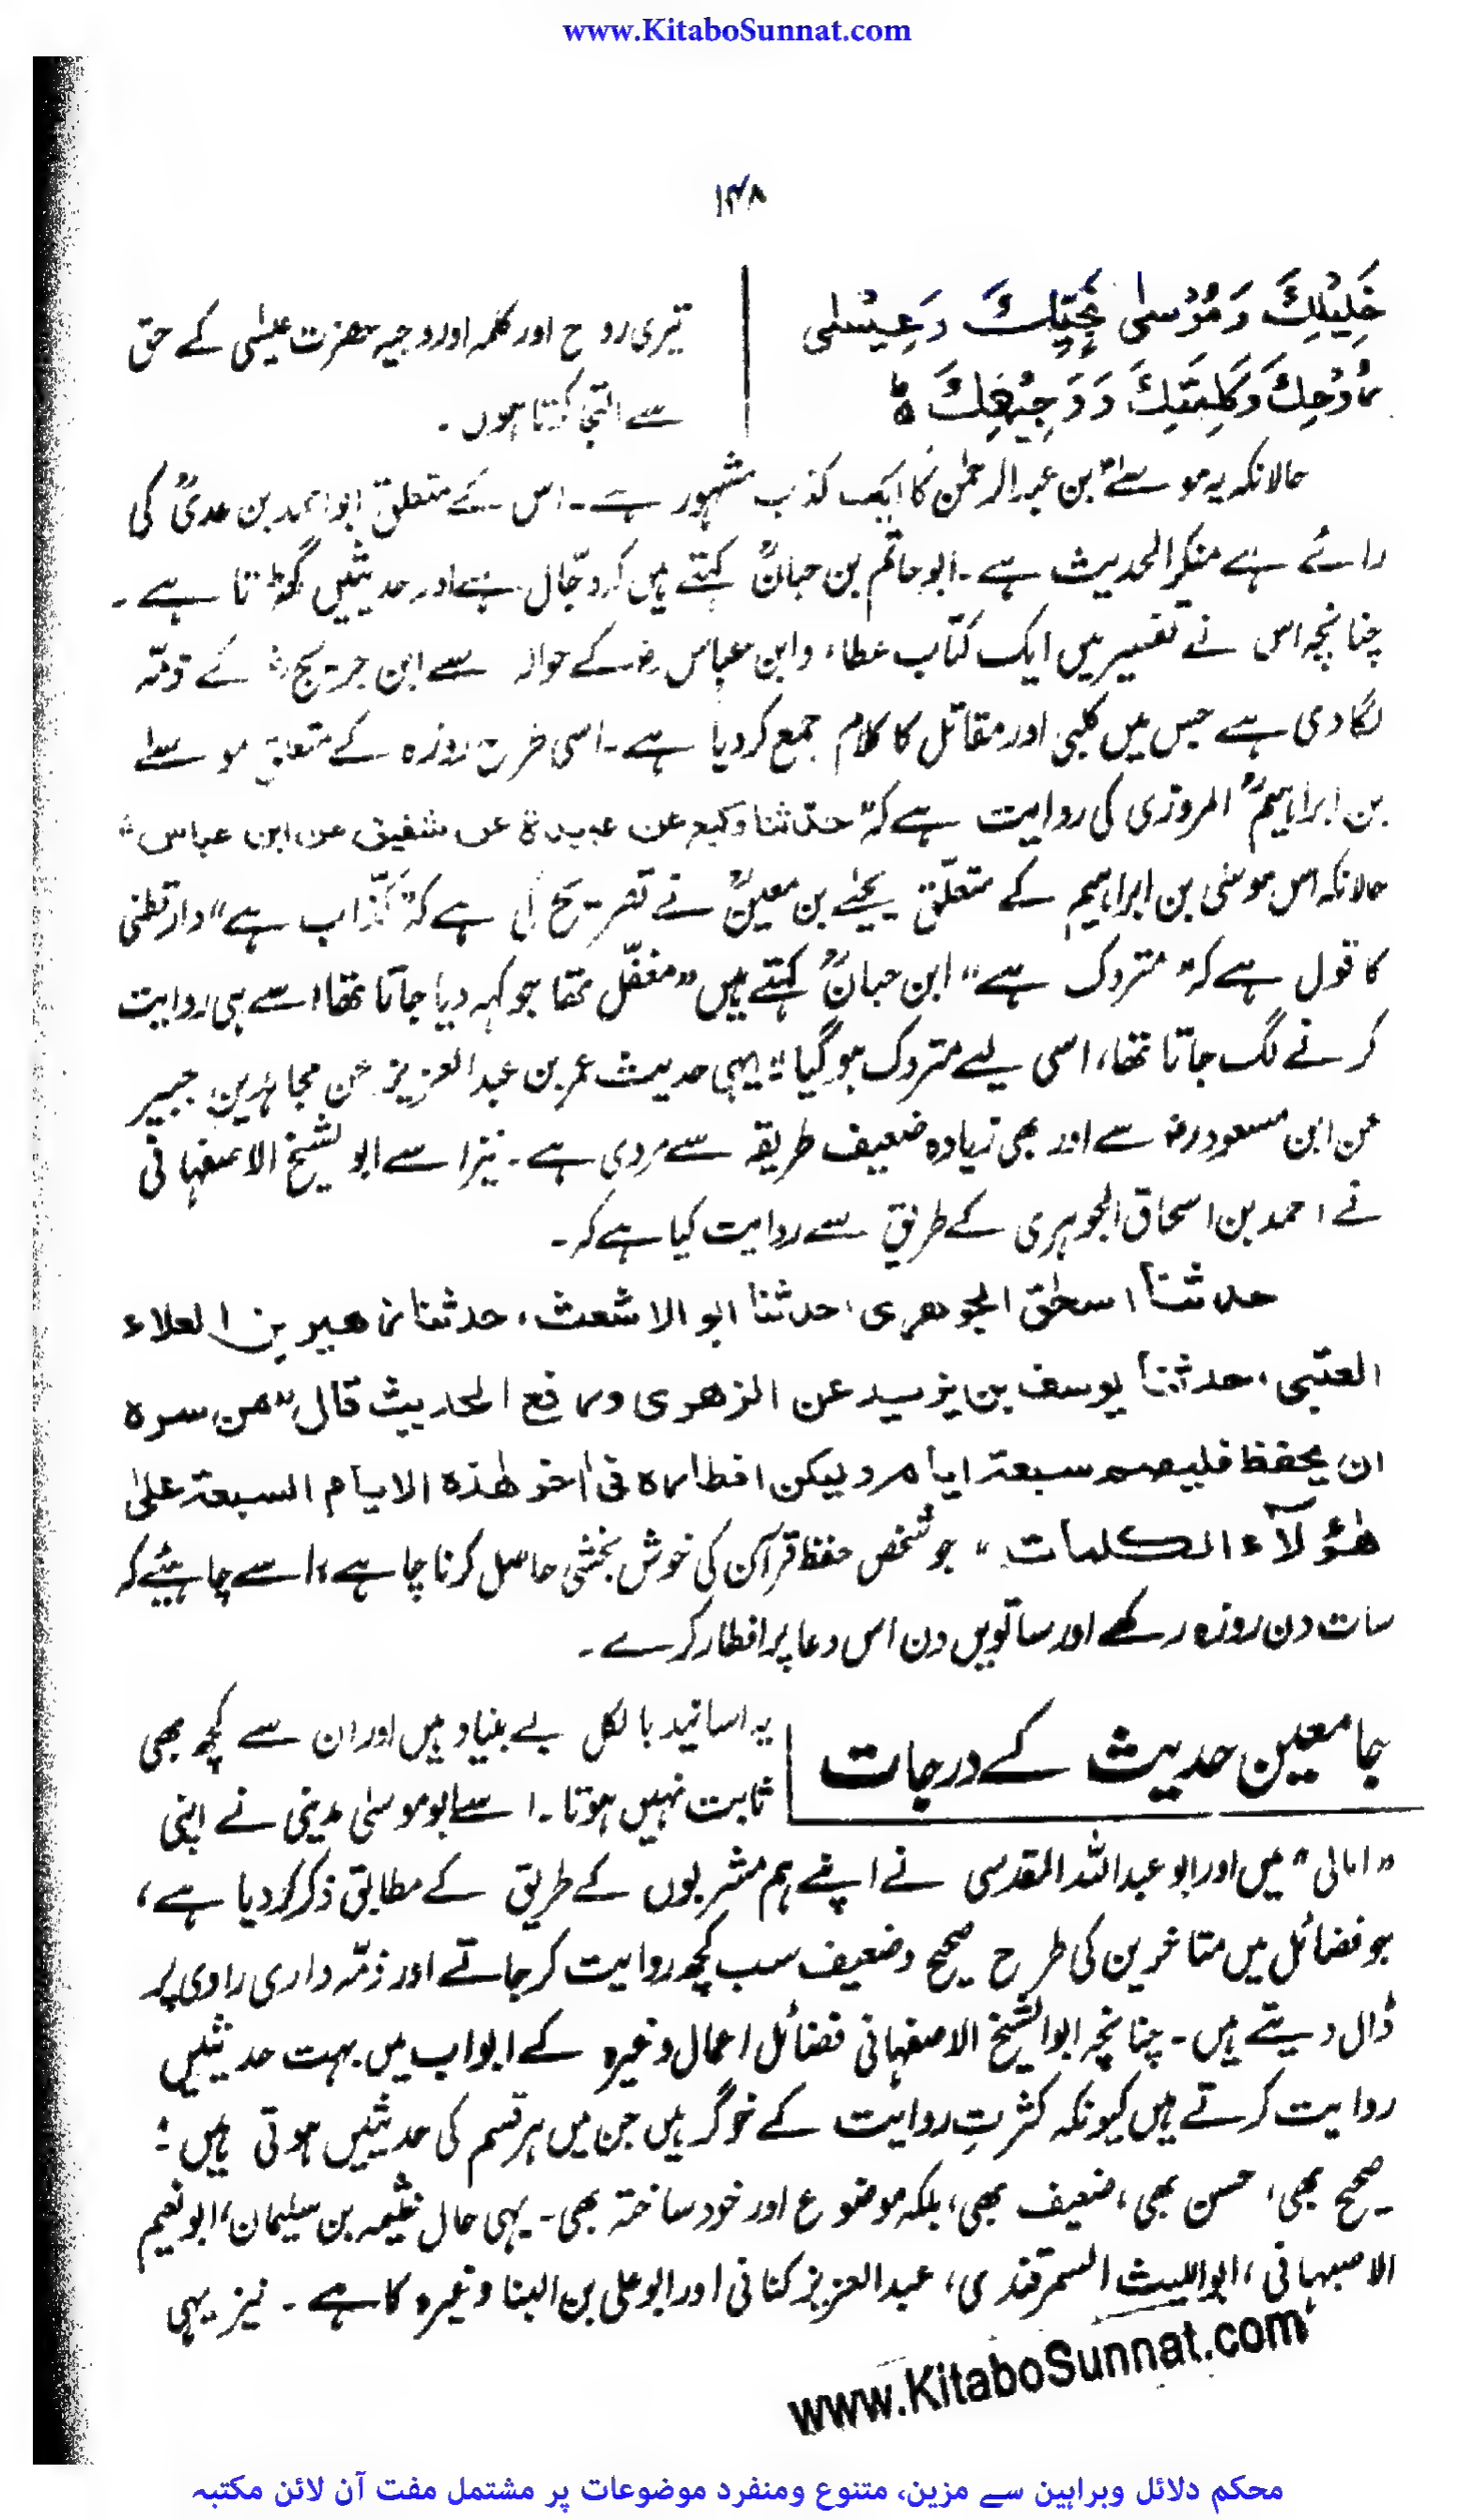 www.KitaboSunnat.com
۱۴۸
خَلِیْلِكَ وَمُوْسٰی نَجِیِّكَ وَعِیْسٰی
رُوْحِكَ وَكَلِمَتِكَ وَوَجِیْهِكَ ط
تیری روح اور کلمہ اور وجیہ حضرت عیسٰی کے حق
سے التجا کرتا ہوں۔
حالانکہ یہ موسےٰ بن عبدالرحمٰن کا ایک کذب مشہور ہے۔ اس کے متعلق ابو احمد بن عدیؒ کی
رائے ہے منکر الحدیث ہے۔ ابو حاتم بن حبانؒ کہتے ہیں کہ دجّال ہے اور حدیثیں گھڑتا ہے۔
چنانچہ اس نے تفسیر میں ایک کتاب عطاء و ابن عباس رضہ کے حوالہ سے ابن جریجؒ کے ذمّہ
لگا دی ہے جس میں کلبی اور مقاتل کا کلام جمع کر دیا ہے۔ اسی طرح روزہ کے متعلق موسےٰ
بن ابراہیمؒ المروزی کی روایت ہے کہ "حدّثنا وکیع عن عبیدة عن شفیق عن ابن عباس"
حالانکہ اس موسٰی بن ابراہیم کے متعلّق یحیٰے بن معینؒ نے تصریح کی ہے کہ "کَذّاب ہے" دارقطنی
کا قول ہے کہ "متروک ہے" ابن حبانؒ کہتے ہیں "مغفّل تھا جو کہہ دیا جاتا تھا اسے ہی روایت
کرنے لگ جاتا تھا، اسی لیے متروک ہو گیا" یہی حدیث عمر بن عبدالعزیز عن مجاہد بن جبیر
عن ابن مسعود رضہ سے اور بھی زیادہ ضعیف طریقہ سے مروی ہے۔ نیز اسے ابو لشیخ الاصفہانی
نے احمد بن اسحاق الجوہری کے طریق سے روایت کیا ہے کہ۔
حدثنا اسحٰق الجوهری، حدثنا ابو الاشعث، حدثنا زهیر بن العلاء
العتبی، حدثنا یوسف بن یزید عن الزهری ورفع الحدیث قال "من سره
ان یحفظ فلیصم سبعة ایام ولیکن افطاره فی اٰخر هٰذه الایام السبعة علیٰ
هٰؤلآء الکلمات" جو شخص حفظ قرآن کی خوش بختی حاصل کرنا چاہے، اسے چاہیئے کہ
سات دن روزہ رکھے اور ساتویں دن اس دعا پر افطار کرے۔
جامعین حدیث کے درجات
یہ اسانید بالکل بے بنیاد ہیں اور ان سے کچھ بھی
ثابت نہیں ہوتا۔ اسے ابو موسٰی مدینی نے اپنی
"امالی" میں اور ابو عبداللہ المقدسی نے اپنے ہم مشربوں کے طریق کے مطابق ذکر کر دیا ہے،
جو فضائل میں متاخرین کی طرح صحیح وضعیف سب کچھ روایت کر جاتے اور ذمّہ داری راوی پر
ڈال دیتے ہیں۔ چنانچہ ابو الشیخ الاصفہانی فضائل اعمال وغیرہ کے ابواب میں بہت حدیثیں
روایت کرتے ہیں کیونکہ کثرتِ روایت کے خوگر ہیں جن میں ہر قسم کی حدیثیں ہوتی ہیں:
صحیح بھی، حسن بھی، ضعیف بھی، بلکہ موضوع اور خود ساختہ بھی۔ یہی حال خثیمہ بن سلیمان، ابو نعیم
الاصبہانی، ابو اللیث السمرقندی، عبدالعزیز کنانی اور ابو علی بن البنا وغیرہ کا ہے۔ نیز یہی
www.KitaboSunnat.com
محکم دلائل وبراہین سے مزین، متنوع ومنفرد موضوعات پر مشتمل مفت آن لائن مکتبہ